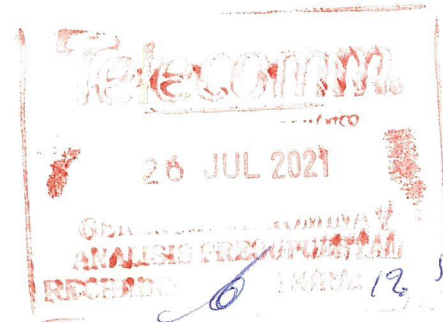 Telecomm.
26 JUL 2021
ANALISIS PRESUPUESTAL
RECIBIDO HORA: 12